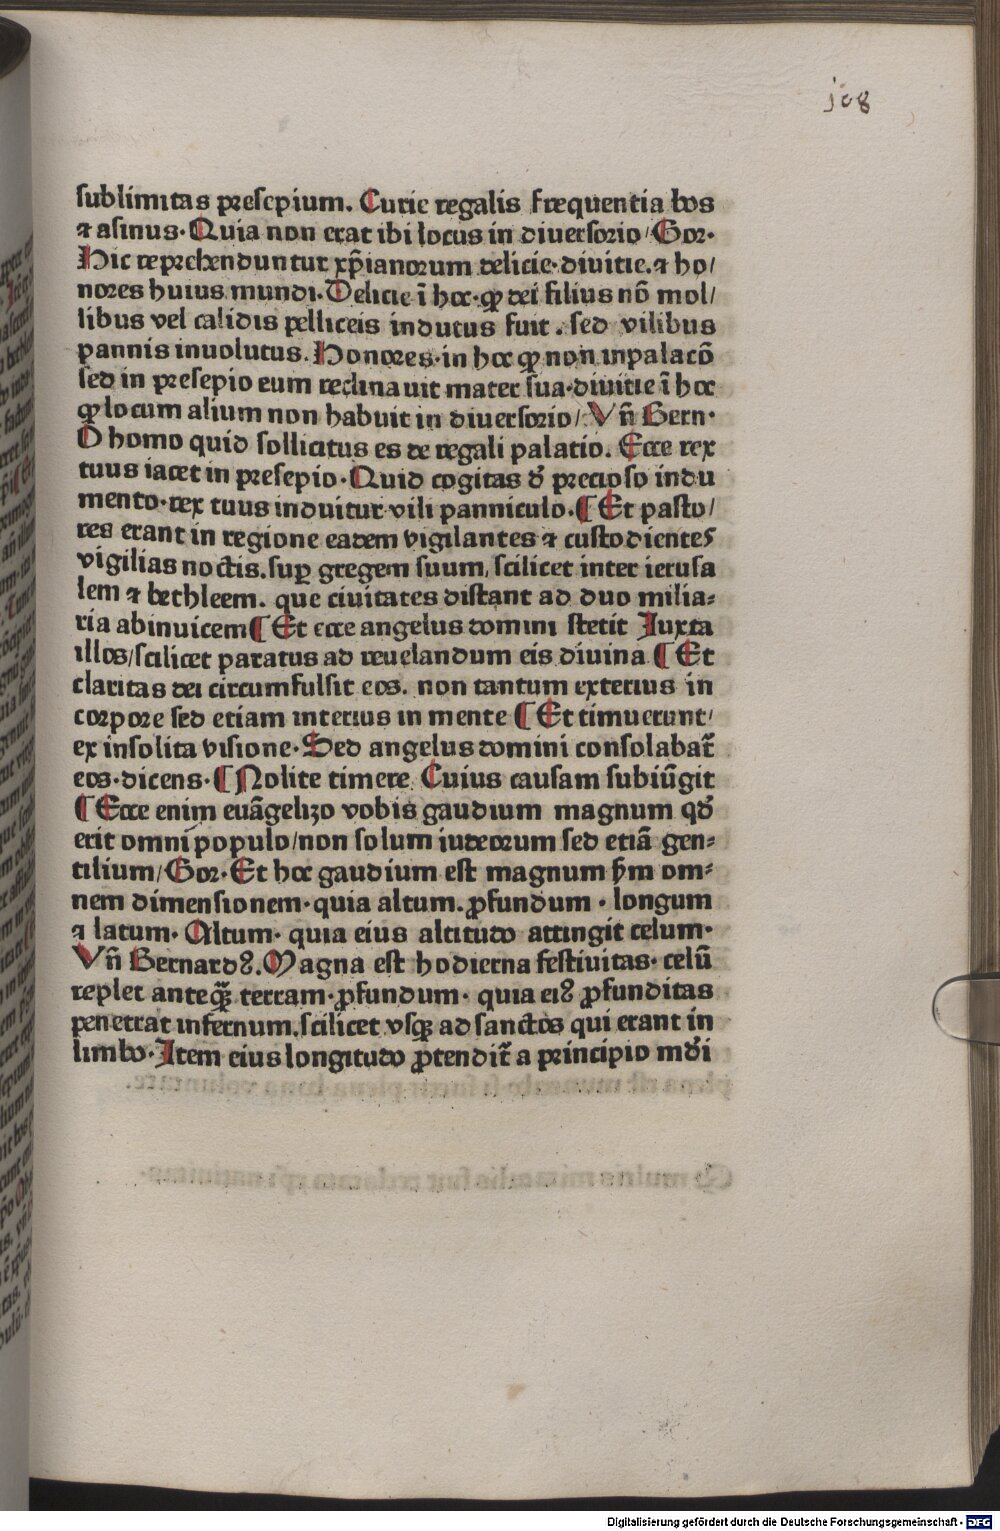 108
sublimitas presepium. Curie regalis frequentia bos
⁊ asinus. Quia non erat ibi locus in diuersorio/ Gor.
Hic reprehenduntur xp̄ianorum delicie. diuitie. ⁊ ho/
nores huius mundi. Delicie ī hoc. ꝙ dei filius nō mol/
libus vel calidis pelliceis indutus fuit. sed vilibus
pannis inuolutus. Honores. in hoc ꝙ non inpalacō
sed in presepio eum reclinauit mater sua. diuitie ī hoc
ꝙ locum alium non habuit in diuersorio/ Vn̄ Bern.
O homo quid sollicitus es de regali palatio. Ecce rex
tuus iacet in presepio. Quid cogitas đ precioso indu
mento. rex tuus induitur vili panniculo. ¶ Et pasto/
res erant in regione eadem vigilantes ⁊ custodientes
vigilias noctis. suꝑ gregem suum, scilicet inter ierusa
lem ⁊ bethleem. que ciuitates distant ad duo milia⸗
ria abinuicem ¶ Et ecce angelus domini stetit Iuxta
illos/ scilicet paratus ad reuelandum eis diuina ¶ Et
claritas dei circumfulsit eos. non tantum exterius in
corpore sed etiam interius in mente ¶ Et timuerunt/
ex insolita visione. Sed angelus domini consolabat᷑
eos. dicens. ¶ Nolite timere Cuius causam subiūgit
¶ Ecce enim euāgelizo vobis gaudium magnum qđ
erit omni populo/ non solum iudeorum sed etiā gen⸗
tilium/ Gor. Et hoc gaudium est magnum ẜm om⸗
nem dimensionem. quia altum. ꝓfundum. longum
⁊ latum. Altum. quia eius altitudo attingit celum.
Vn̄ Bernardꝰ. Magna est hodierna festiuitas. celū
replet anteꝙ̄ terram. ꝓfundum. quia eiꝰ ꝓfunditas
penetrat infernum. scilicet vsqꝫ ad sanctos qui erant in
limbo. Item eius longitudo ꝓtendit᷑ a principio mđi
Digitalisierung gefördert durch die Deutsche Forschungsgemeinschaft - DFG